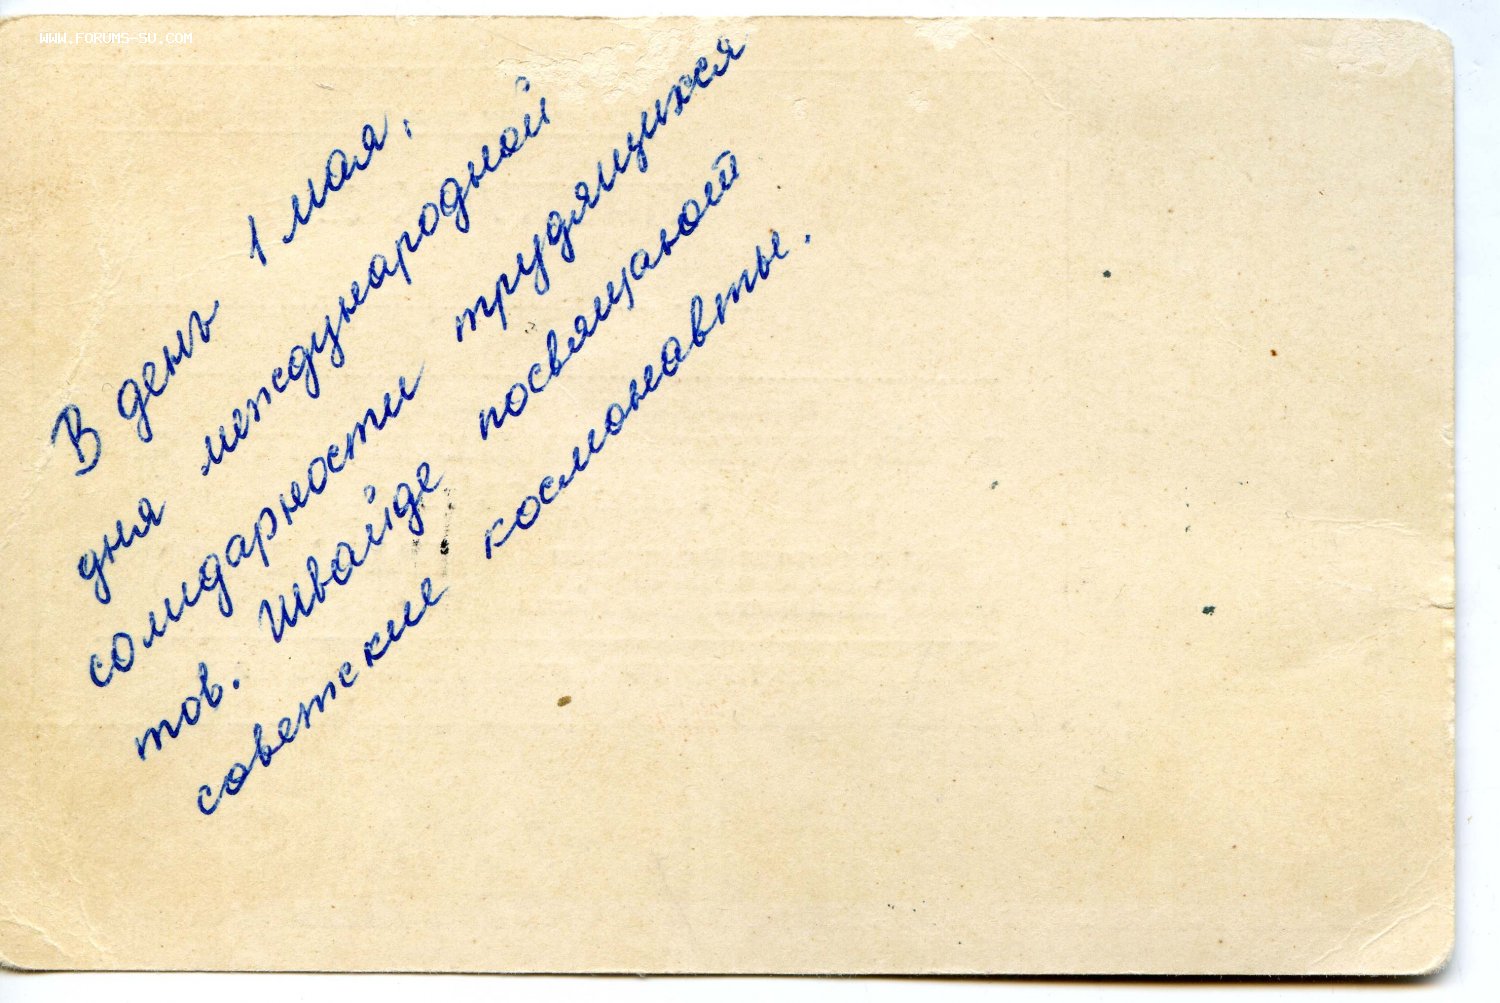 WWW.FORUMS-SU.COM
В день 1 мая,
дня международной
солидарности трудящихся
тов. Швайде посвящают
советские космонавты.